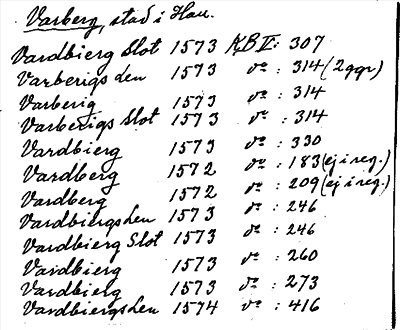 Varberg, stad i Hall.
Vardbierg Slot 1573 KB II: 307
Varberigs len 1573 do : 314 (2 ggr)
Varberig 1573 do : 314
Varberigs Slot 1573 do : 314
Vardbierg 1573 do : 330
Vardberg 1572 do : 183 (ej i reg.)
Vardberg 1572 do : 209 (ej i reg.)
Vardbiergs len 1573 do : 246
Vardbierg Slot 1573 do : 246
Vardbierg 1573 do : 260
Vardbierg 1573 do : 273
Vardbiergs len 1574 do : 416